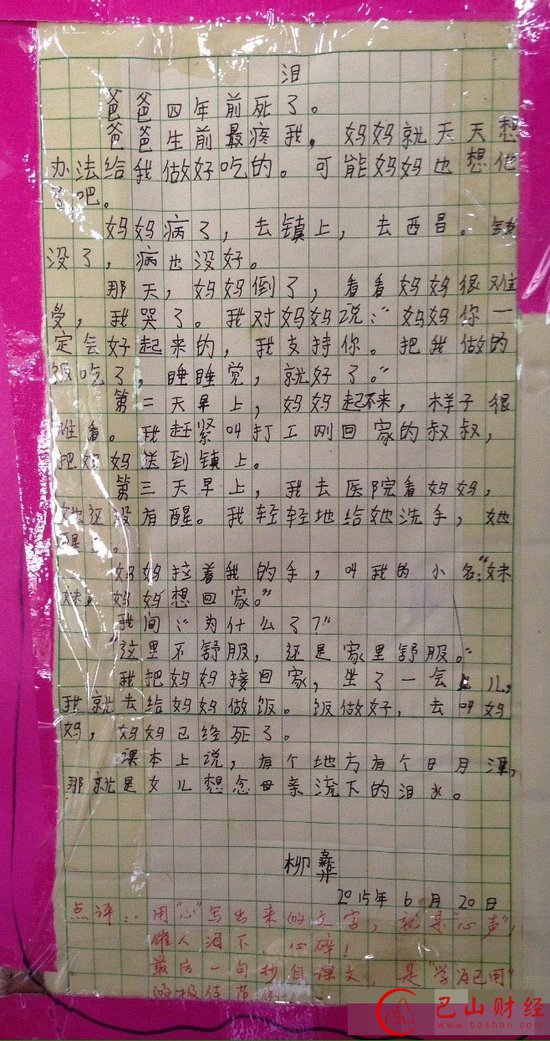 泪
爸爸四年前死了。
爸爸生前最疼我，妈妈就天天想
办法给我做好吃的。可能妈妈也想他
了吧。
妈妈病了，去镇上，去西昌。钱
没了，病也没好。
那天，妈妈倒了，看看妈妈很难
受，我哭了。我对妈妈说：“妈妈你一
定会好起来的，我支持你。把我做的
饭吃了，睡睡觉，就好了。”
第二天早上，妈妈起不来，样子很
难看。我赶紧叫打工刚回家的叔叔，
把妈妈送到镇上。
第三天早上，我去医院看妈妈，
她还没有醒。我轻轻地给她洗手，她
醒了。
妈妈拉着我的手，叫我的小名：“妹
妹，妈妈想回家。”
我问：“为什么了？”
“这里不舒服，还是家里舒服。”
我把妈妈接回家，坐了一会儿，
我就去给妈妈做饭。饭做好，去叫妈
妈，妈妈已经死了。
课本上说，有个地方有个日月潭，
那就是女儿想念母亲流下的泪水。
柳彝
2015年6月20日
点评：用“心”写出来的文字，就是“心声”，
催人泪下，心碎！
最后一句抄自课文，是“学为己用”
的极佳范
巴山财经
www.bashan.com